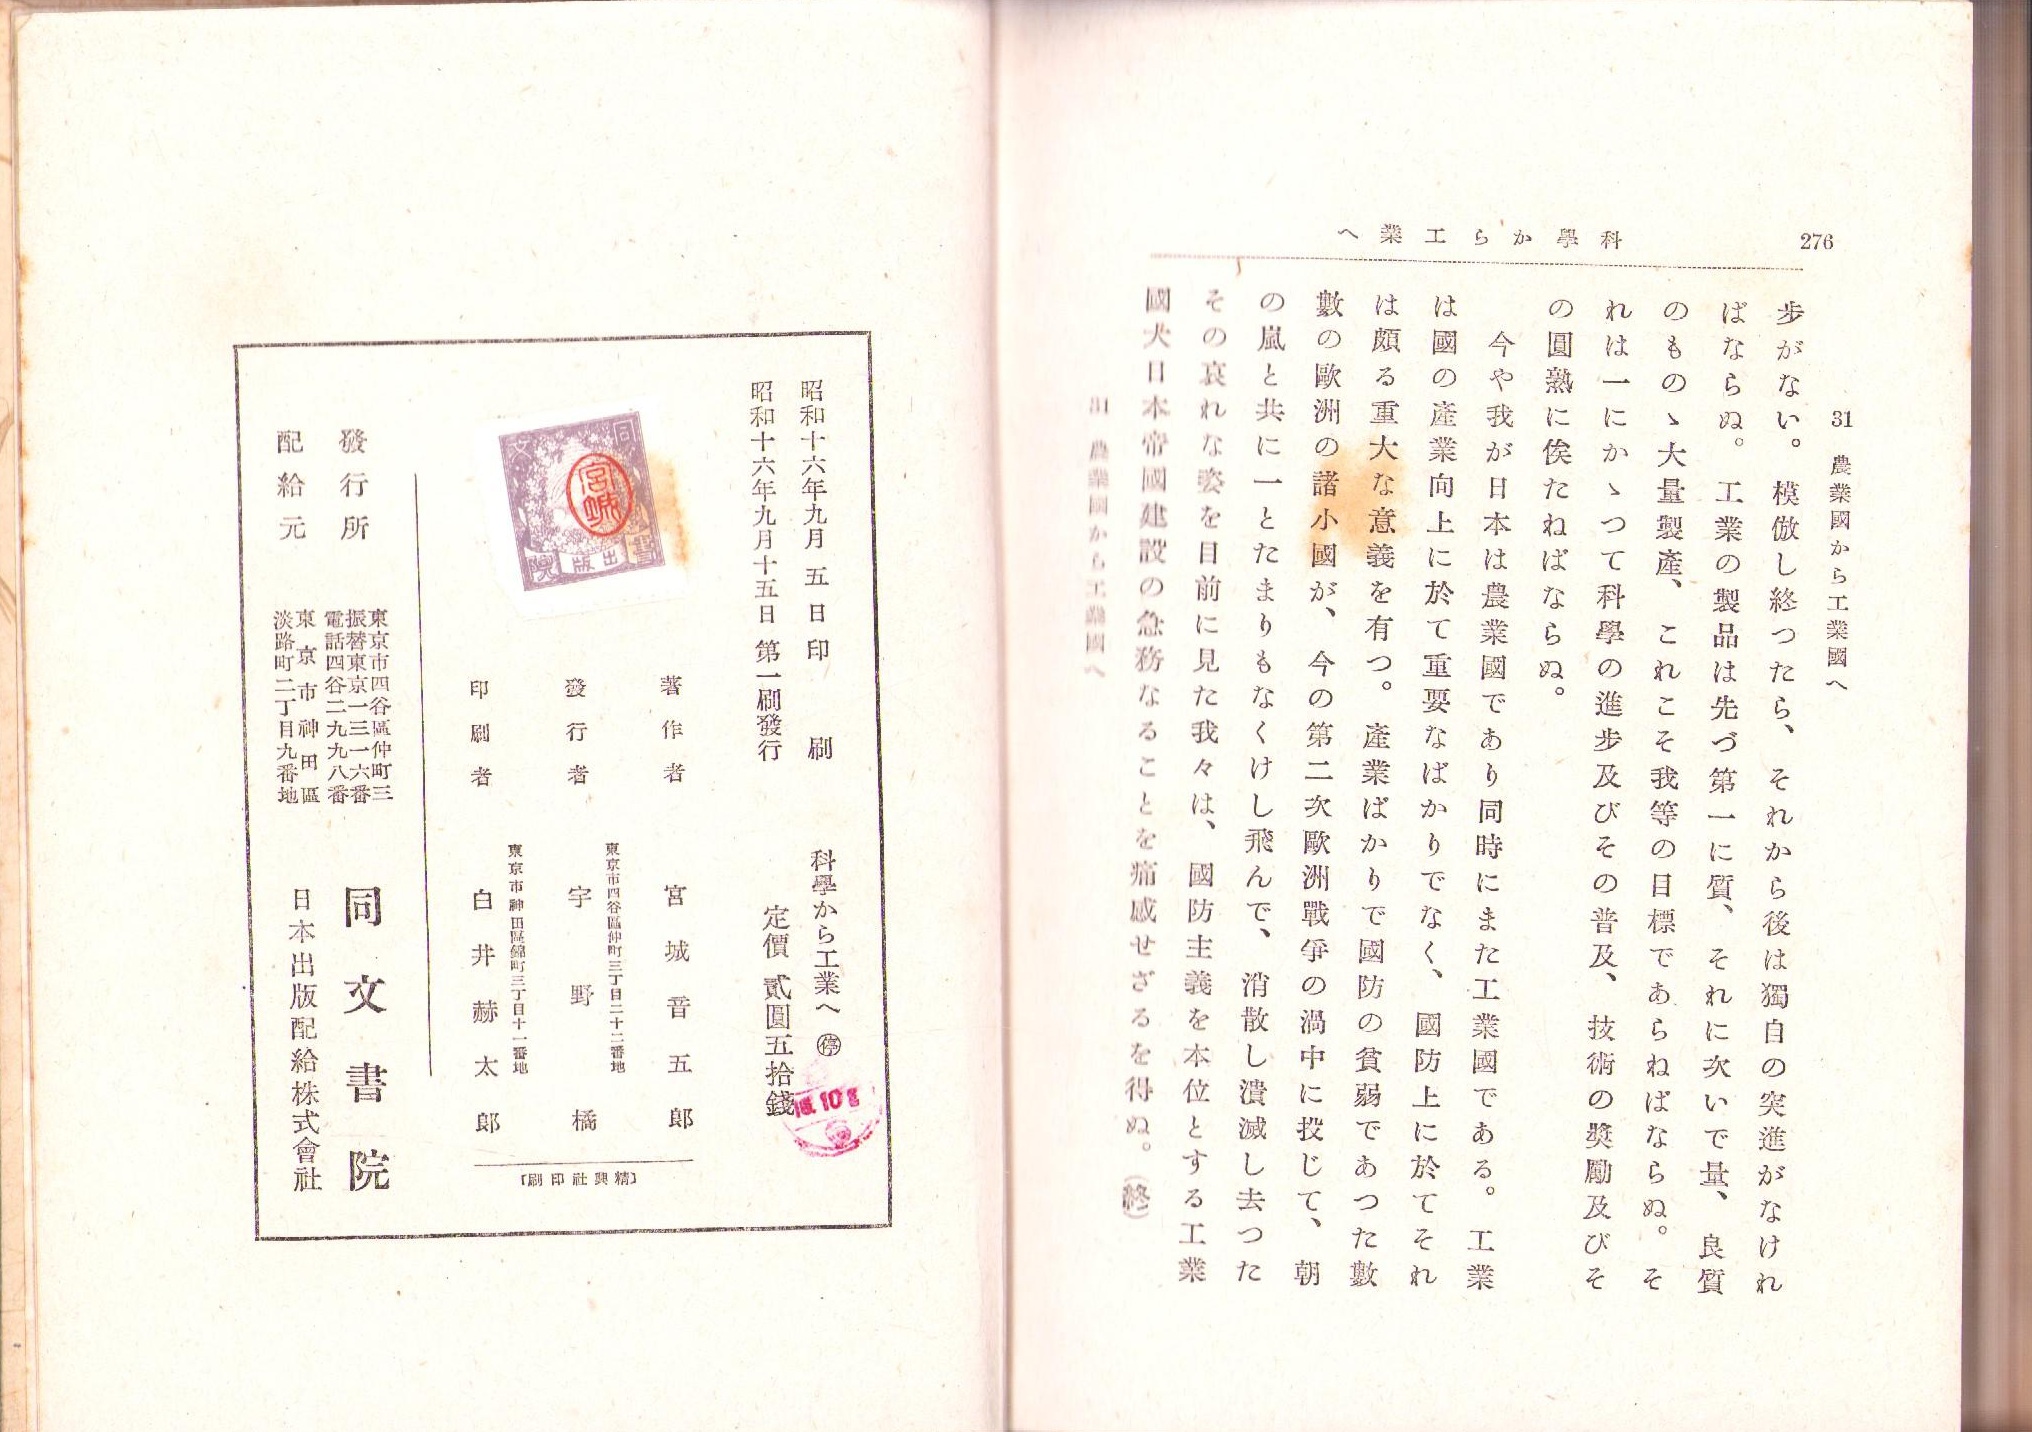 276
科學から工業へ
31 農業國から工業國へ
步がない。模倣し終つたら、それから後は獨自の突進がなけれ
ばならぬ。工業の製品は先づ第一に質、それに次いで量、良質
のものゝ大量製產、これこそ我等の目標であらねばならぬ。そ
れは一にかゝつて科學の進步及びその普及、技術の奬勵及びそ
の圓熟に俟たねばならぬ。
今や我が日本は農業國であり同時にまた工業國である。工業
は國の產業向上に於て重要なばかりでなく、國防上に於てそれ
は頗る重大な意義を有つ。產業ばかりで國防の貧弱であつた數
數の歐洲の諸小國が、今の第二次歐洲戰爭の渦中に投じて、朝
の嵐と共に一とたまりもなくけし飛んで、消散し潰滅し去つた
その哀れな姿を目前に見た我々は、國防主義を本位とする工業
國大日本帝國建設の急務なることを痛感せざるを得ぬ。(終)
31 農業國から工業國へ
昭和十六年九月五日印刷
昭和十六年九月十五日第一刷發行
科學から工業へ ㊡
定價 貳圓五拾錢
16.10.
同文書院出版
宮城
著作者 宮城音五郎
東京市四谷區仲町三丁目二十二番地
發行者 宇野橘
東京市神田區錦町三丁目十一番地
印刷者 白井赫太郎
〔精興社印刷〕
發行所
東京市四谷區仲町三
振替東京一三一六番
電話四谷二九九八番
同文書院
配給元
東京市神田區
淡路町二丁目九番地
日本出版配給株式會社